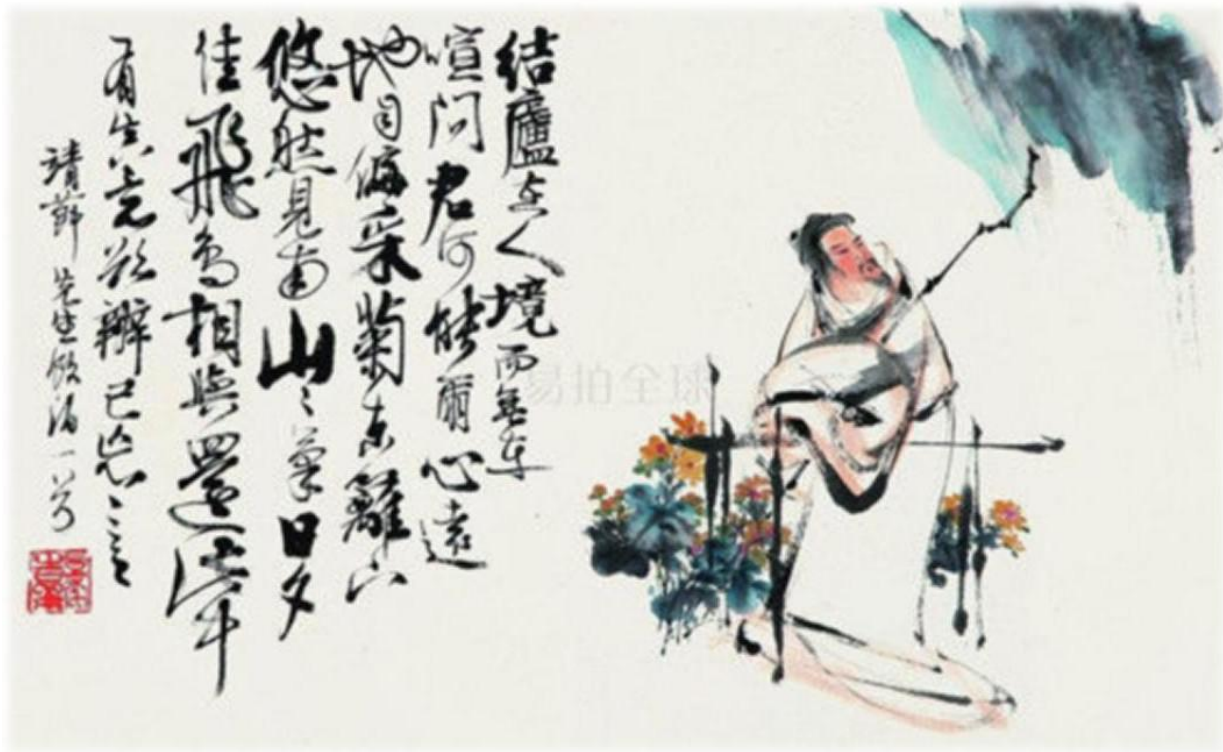 結廬在人境而無車
喧問君何能爾心遠
地自偏采菊東籬下
悠然見南山〻氣日夕
佳飛鳥相與還此中
有真意欲辨已忘言
靖節先生飲酒一首
易拍全球